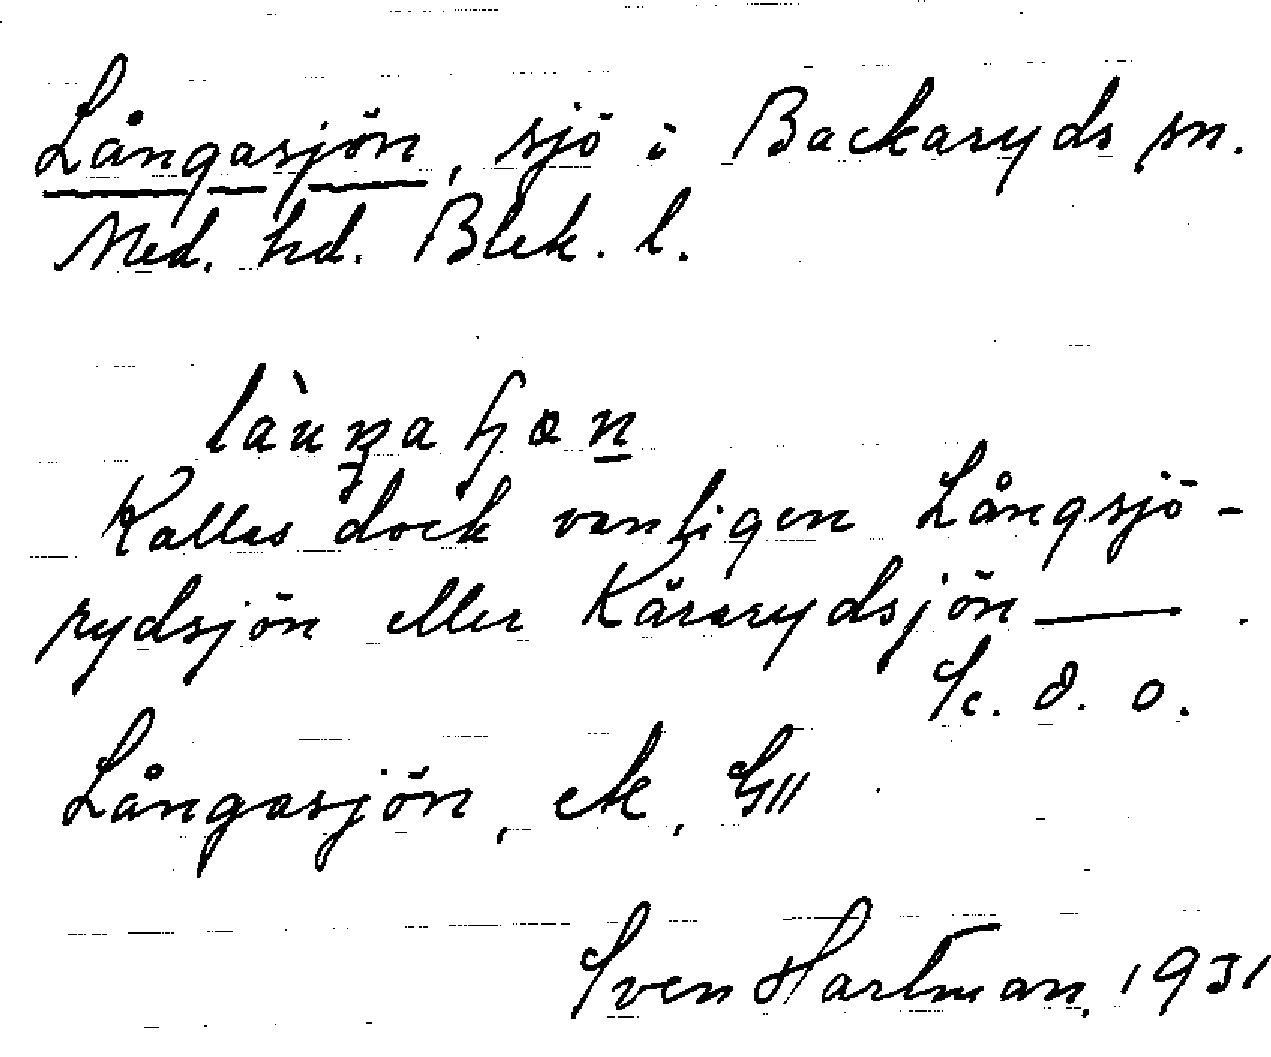 Långasjön, sjö i Backaryds sn.
Med. hd. Blek. l.
Kallas dock vanligen Långsjö-
rydsjön eller Kårarydsjön — .
Se. d. o.
Långasjön, ek,
Sven Hartman, 1931